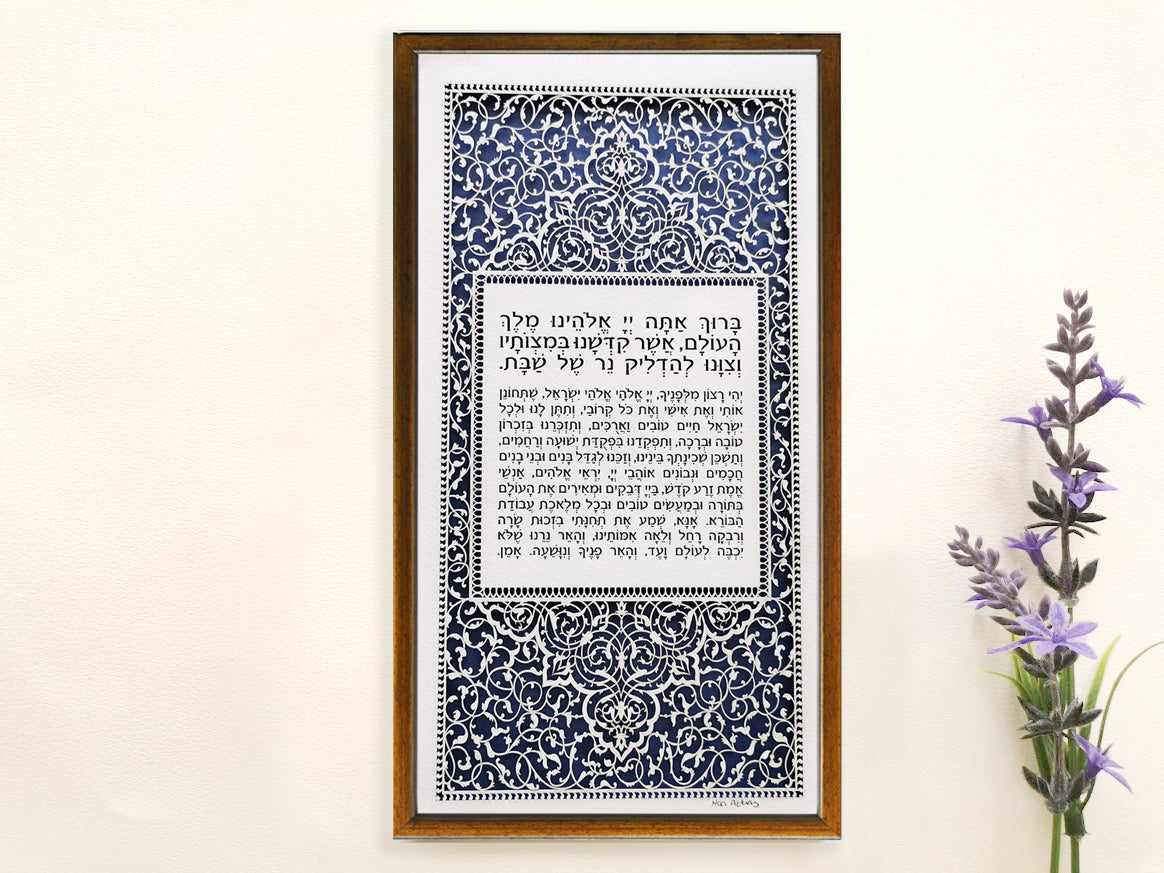 בָּרוּךְ אַתָּה יְיָ אֱלֹהֵינוּ מֶלֶךְ
הָעוֹלָם, אֲשֶׁר קִדְּשָׁנוּ בְּמִצְוֹתָיו
וְצִוָּנוּ לְהַדְלִיק נֵר שֶׁל שַׁבָּת.
יְהִי רָצוֹן מִלְּפָנֶיךָ, יְיָ אֱלֹהַי אֱלֹהֵי יִשְׂרָאֵל, שֶׁתְּחוֹנֵן
אוֹתִי וְאֶת אִישִׁי וְאֶת כֹּל קְרוֹבַי, וְתִתֶּן לָנוּ וּלְכָל
יִשְׂרָאֵל חַיִּים טוֹבִים וַאֲרֻכִּים, וְתִזְכְּרֵנוּ בְּזִכְרוֹן
טוֹבָה וּבְרָכָה, וְתִפְקְדֵנוּ בִּפְקֻדַּת יְשׁוּעָה וְרַחֲמִים,
וְתַשְׁכֵּן שְׁכִינָתְךָ בֵּינֵינוּ, וְזַכֵּנוּ לְגַדֵּל בָּנִים וּבְנֵי בָנִים
חֲכָמִים וּנְבוֹנִים אוֹהֲבֵי יְיָ, יִרְאֵי אֱלֹהִים, אַנְשֵׁי
אֱמֶת זֶרַע קֹדֶשׁ, בַּייָ דְּבֵקִים וּמְאִירִים אֶת הָעוֹלָם
בְּתוֹרָה וּבְמַעֲשִׂים טוֹבִים וּבְכָל מְלֶאכֶת עֲבוֹדַת
הַבּוֹרֵא. אָנָּא, שְׁמַע אֶת תְּחִנָּתִי בִּזְכוּת שָׂרָה
וְרִבְקָה רָחֵל וְלֵאָה אִמּוֹתֵינוּ, וְהָאֵר נֵרֵנוּ שֶׁלֹּא
יִכְבֶּה לְעוֹלָם וָעֶד, וְהָאֵר פָּנֶיךָ וְנִוָּשֵׁעָה. אָמֵן.
Noa Attias